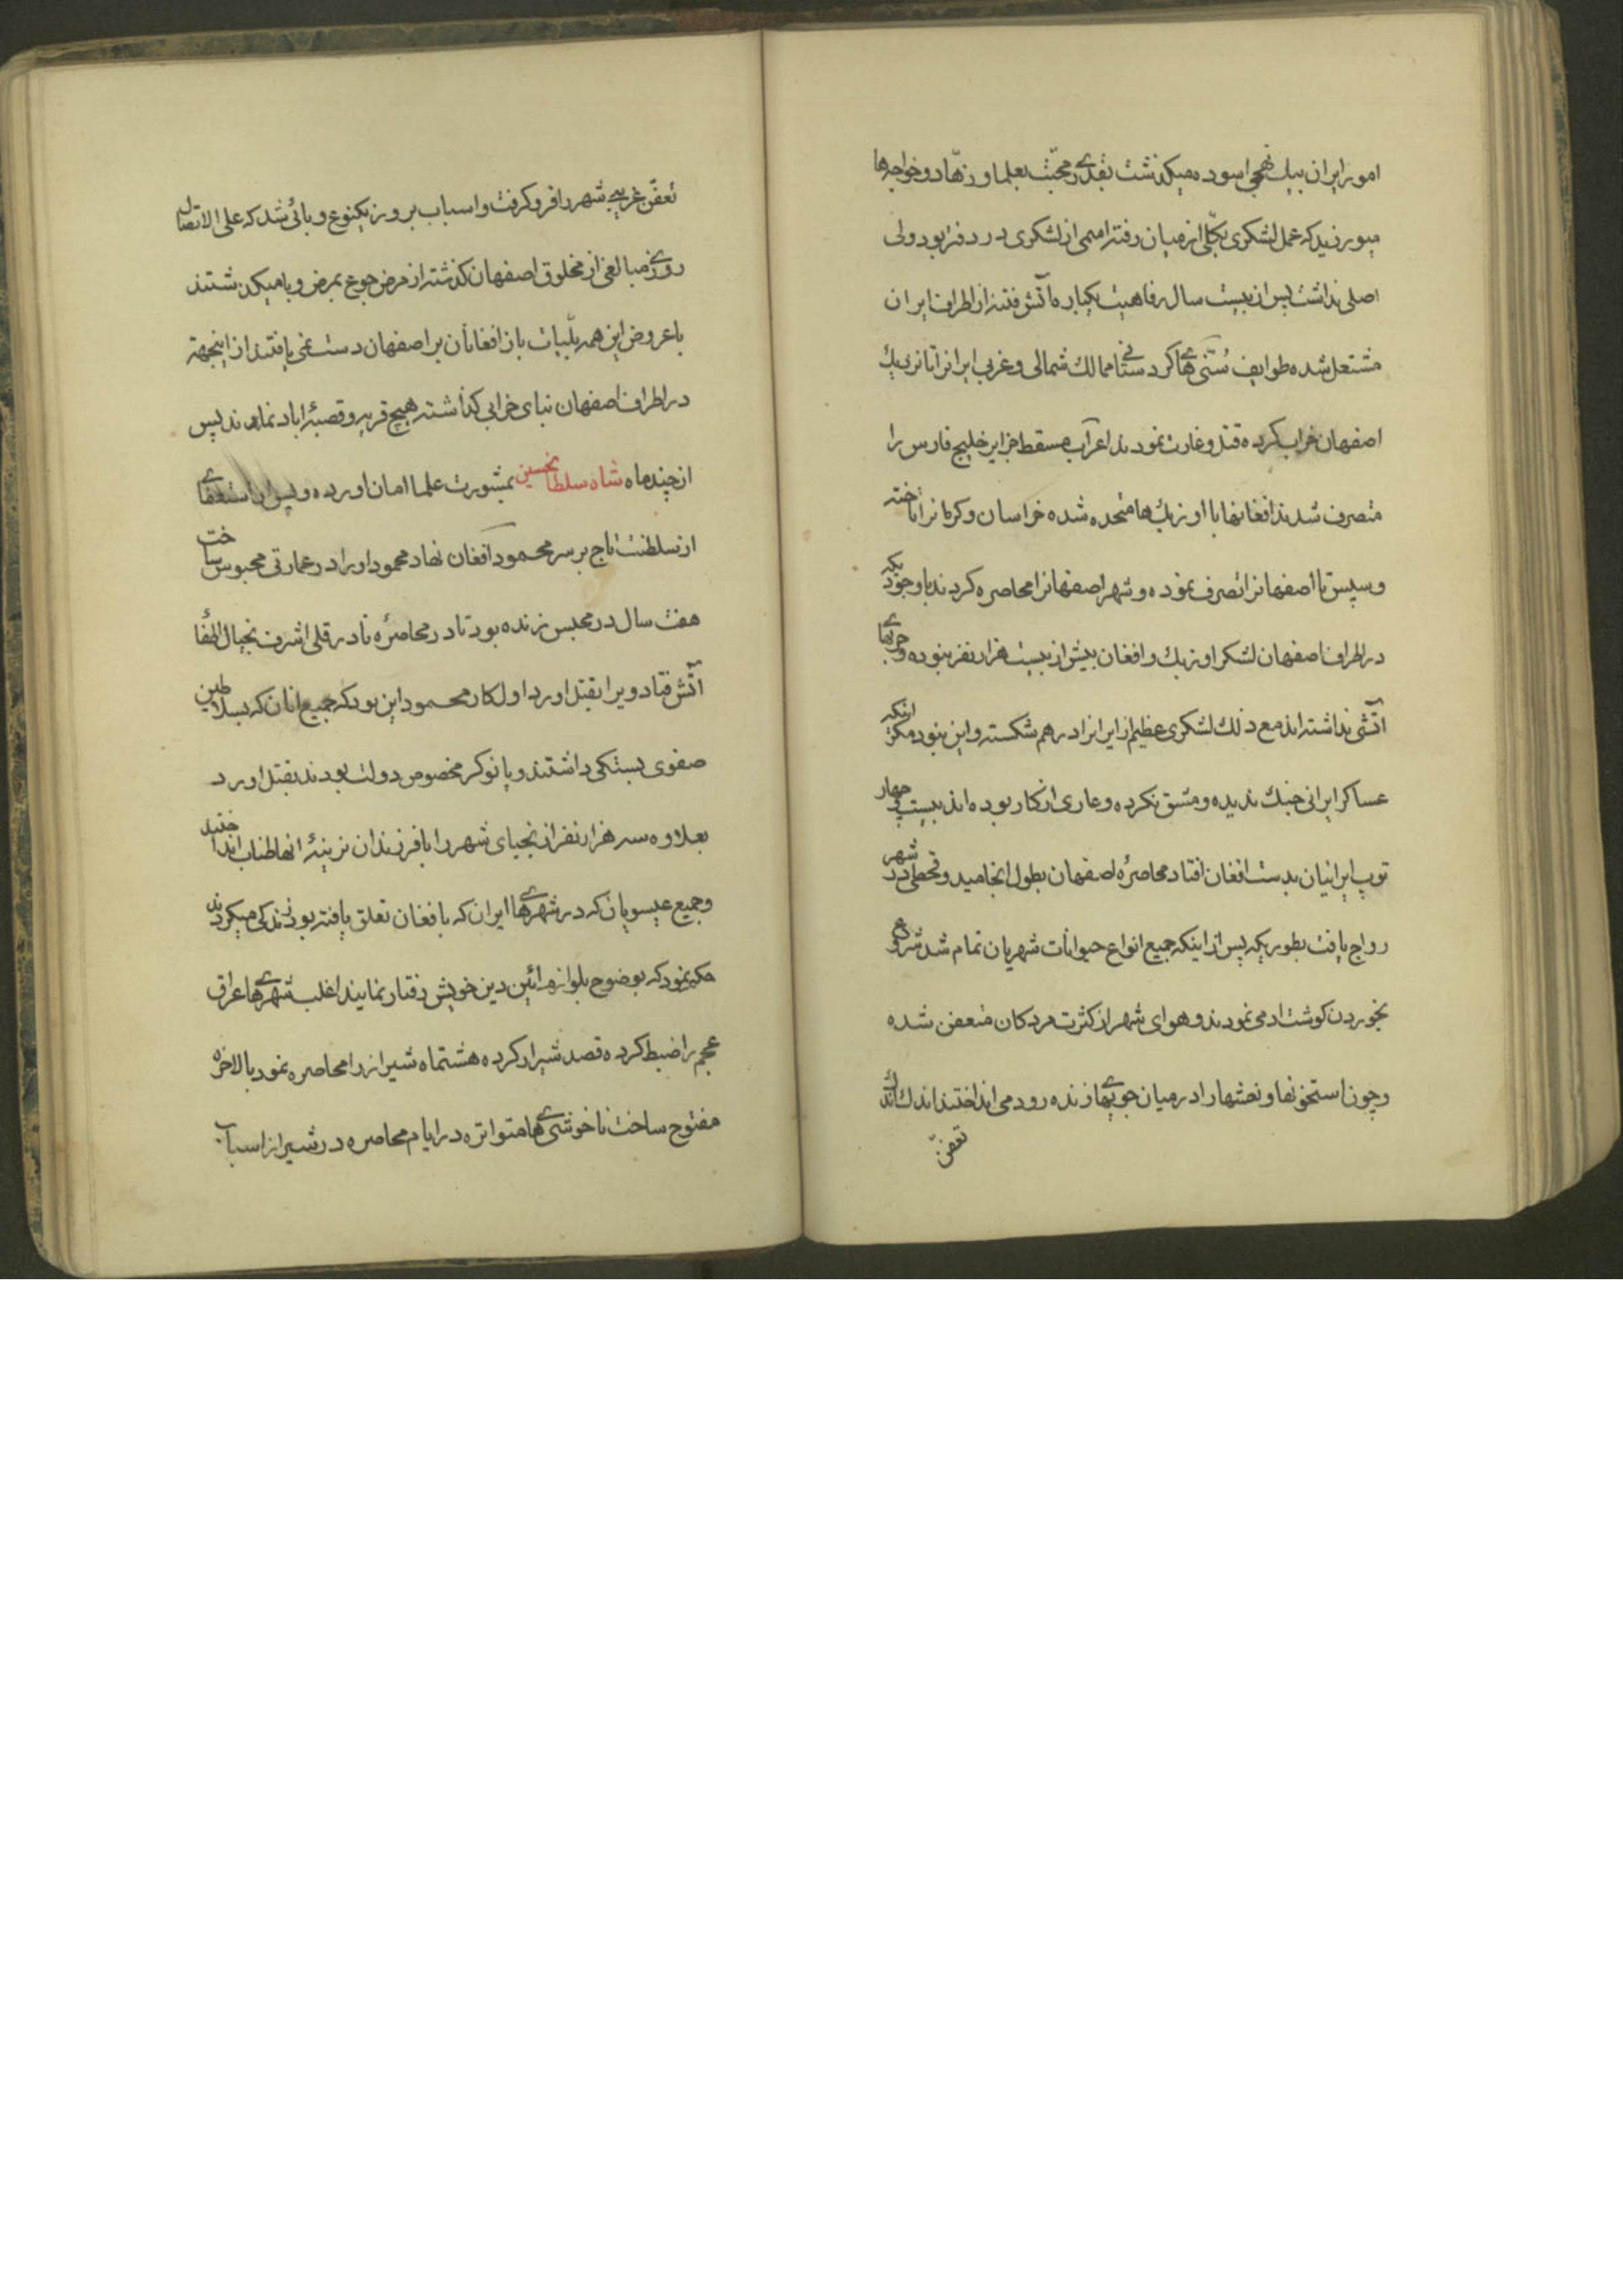 امور ایران بیک نهجی اسوده میکذشت بقدری محبّت بعلما و زهّاد و خواجه ها
میورزید که عمل لشکری بکلّی از میان رفته اسمی از لشکری در دفتر بود ولی
اصلی نداشت پس از بیست سال رفاهیت یکباره آتش فتنه از اطراف ایران
مشتعل شده طوایف سُنّی های کردستانی ممالک شمالی و غربی ایرانرا تا نزدیک
اصفهان خراب کرده قتل و غارت نمودند اعراب مسقط جزایر خلیج فارس را
متصرف شدند افغانها با اوزبک ها متحده شده خراسان و کرمانرا تاخته
و سپس تا اصفهانرا تصرف نموده و شهر اصفهانرا محاصره کردند با وجودیکه
در اطراف اصفهان لشکر اوزبک و افغان بیش از بیست هزار نفر نبوده و حربهای
آتشی نداشته اند مع ذلک لشکری عظیم از ایرانرا درهم شکسته و این نبود مکر ازینکه
عساکر ایرانی جنک ندیده و مشق نکرده و عاری از کار بوده اند بیست و چهار
توپ ایرانیان بدست افغان افتاد محاصرهٔ اصفهان بطول انجامید و قحطی در شهر
رواج یافت بطوریکه پس از اینکه جمیع انواع حیوانات شهریان تمام شد شروع
بخوردن کوشت ادمی نمودند و هوای شهر از کثرت مردکان متعفن شده
و چون استخونها و نعشها را در میان جوی‌های زنده رود می انداختند اندک اندک
تعفّن
تعفّن غریبی شهر را فرو کرفت و اسباب بروز یکنوع وبائی شد که علی الاتصال
روزی مبالغی از مخلوق اصفهان کذشته از مرض جوع بمرض وبا میکذشتند
با عروض این همه بلّیات باز افغانان بر اصفهان دست نمی یافتند از اینجهة
در اطراف اصفهان بنای خرابی کذاشته هیچ قریه و قصبهٔ اباد نماندند پس
از چند ماه شاه سلطانحسین بمشورت علما امان اورده و پس از استعفای
از سلطنت تاج بر سر محمود افغان نهاد محمود او را در عمارتی محبوس ساخت
هفت سال در محبس زنده بود تا در محاصرهٔ نادر قلی اشرف بخیال اطفاٴ
آتش فتاد ویرا بقتل اورد اول کار محمود این بود که جمیع انان که بسلاطین
صفوی بستکی داشتند و یا نوکر مخصوص دولت بودند بقتل اورد
بعلاوه سه هزار نفر از نجبای شهر را با فرزندان نرینهٔ انها طناب انداختند
و جمیع عیسویان که در شهرهای ایران که بافغان تعلق یافته بود زندکی میکردند
حکم نمود که بوضوح بلوازم ائین دین خویش رفتار نمایند اغلب شهرهای عراق
عجم را ضبط کرده قصد شیراز کرده هشتماه شیراز را محاصره نمود بالاخره
مفتوح ساخت ناخوشی های متواتره در ایام محاصره در شیراز اسباب